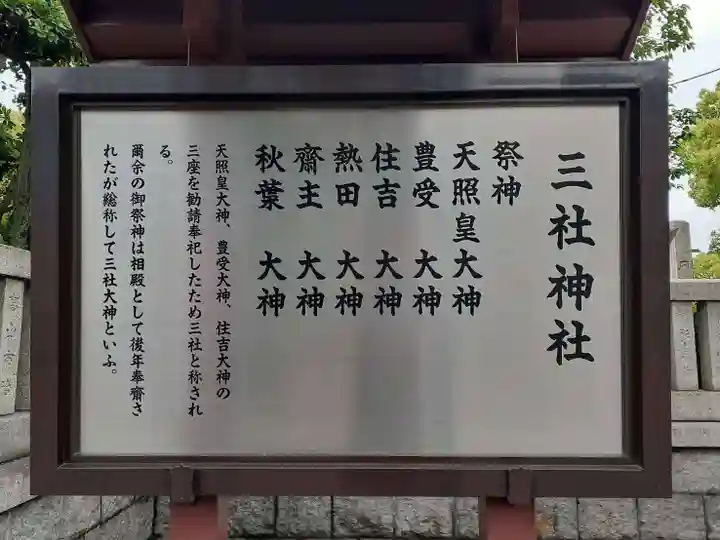 三社神社
祭神
天照皇大神
豊受 大神
住吉 大神
熱田 大神
齋主 大神
秋葉 大神
天照皇大神、豊受大神、住吉大神の
三座を勧請奉祀したため三社と称され
る。
爾余の御祭神は相殿として後年奉齋さ
れたが総称して三社大神といふ。